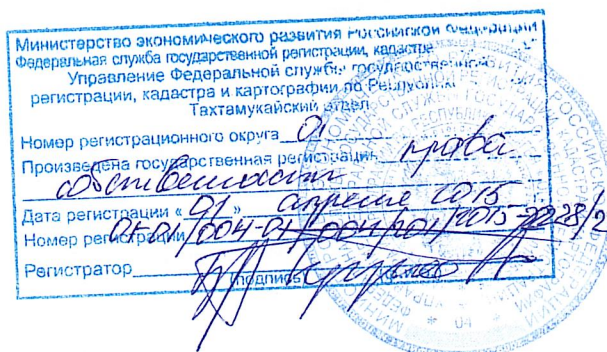 Министерство экономического развития Российской Федерации
Федеральная служба государственной регистрации, кадастра
Управление Федеральной службы государственной
регистрации, кадастра и картографии по Республике
Тахтамукайский отдел
Номер регистрационного округа 01
Произведена государственная регистрация права
собственности
Дата регистрации « 01 » апреля 2015
Номер регистрации 01-01/004-01/004/201/2015-2228/2
Регистратор
подпись